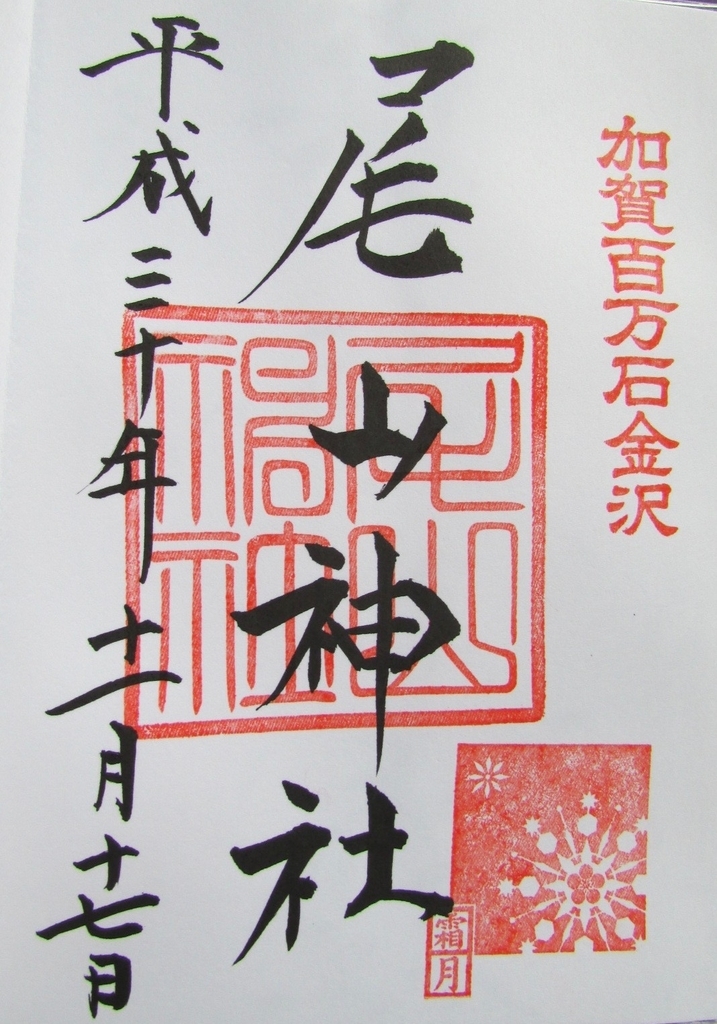 加賀百万石金沢
尾山神社
尾山神社
霜月
平成三十年十一月十七日